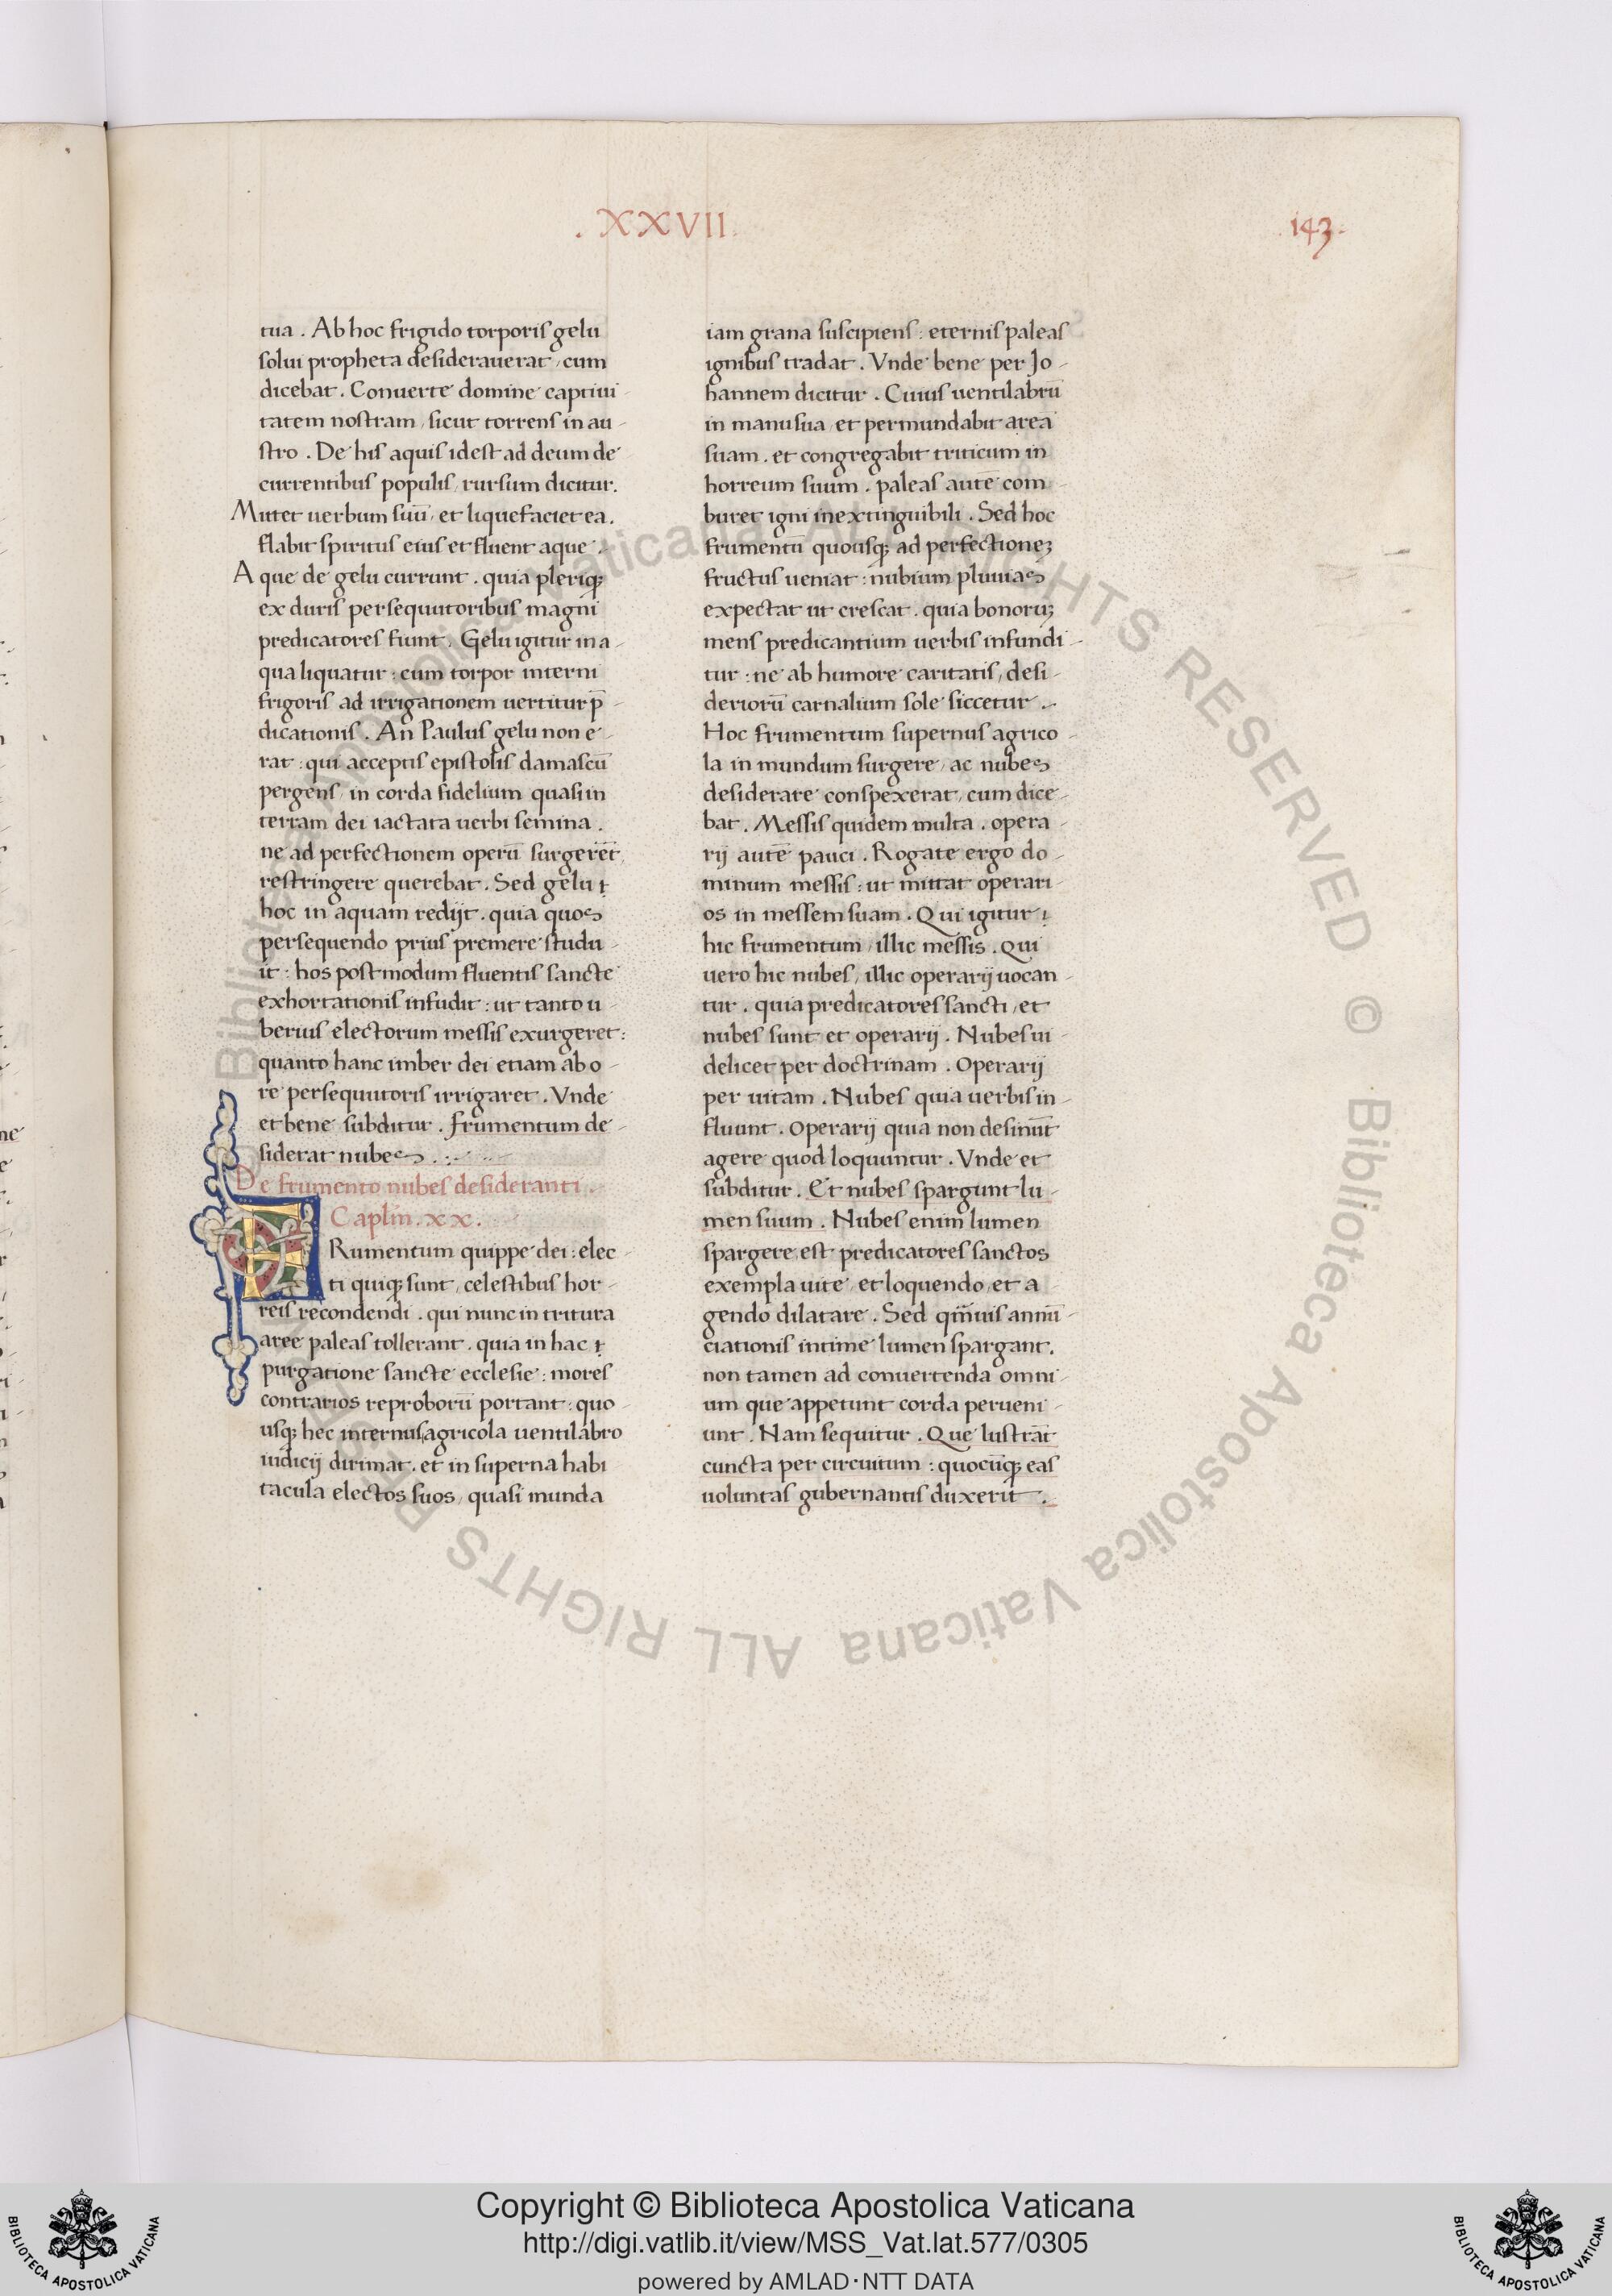 . XXVII.
143.
tua . Ab hoc frigido torporis gelu
solui propheta desiderauerat, cum
dicebat . Conuerte domine captiui-
tatem nostram, sicut torrens in au-
stro . De his aquis idest ad deum de-
currentibus populis, rursum dicitur.
Mittet uerbum suū, et liquefaciet ea.
flabit spiritus eius et fluent aque .
Aque de gelu currunt . quia pleriqꝫ
ex duris persequutoribus magni
predicatores fiunt . Gelu igitur in a-
qua liquatur : cum torpor interni
frigoris ad irrigationem uertitur p̄-
dicationis . An Paulus gelu non e-
rat : qui acceptis epistolis damascū
pergens, in corda fidelium quasi in
terram dei iactata uerbi semina .
ne ad perfectionem operū surgerēt
restringere querebat . Sed gelu ṭ
hoc in aquam redijt . quia quos
persequendo prius premere studu-
it : hos postmodum fluentis sancte
exhortationis infudit : ut tanto u-
berius electorum messis exurgeret :
quanto hanc imber dei etiam ab o-
re persequutoris irrigaret . Vnde
et bene subditur . frumentum de-
siderat nubes . : ~
De frumento nubes desideranti .
Caplm̄ . xx .
FRumentum quippe dei : elec-
ti quiqꝫ sunt, celestibus hor-
reis recondendi . qui nunc in tritura
aree paleas tollerant . quia in hac ṭ
purgatione sancte ecclesie : mores
contrarios reproborū portant : quo-
usqꝫ hec internus agricola uentilabro
iudicij dirimat . et in superna habi-
tacula electos suos, quasi munda
iam grana suscipiens : eternis paleas
ignibus tradat . Vnde bene per Jo-
hannem dicitur . Cuius uentilabrū
in manu sua, et permundabit area
suam . et congregabit triticum in
horreum suum . paleas autē com-
buret igni inextinguibili . Sed hoc
frumentū quousqꝫ ad perfectioneꝫ
fructus ueniat : nubium pluuias
expectat ut crescat . quia bonoruꝫ
mens predicantium uerbis infundi-
tur : ne ab humore caritatis, desi-
deriorū carnalium sole siccetur .
Hoc frumentum supernus agrico-
la in mundum surgere, ac nubes
desiderare conspexerat, cum dice-
bat . Messis quidem multa . opera-
rij autē pauci . Rogate ergo do-
minum messis : ut mittat operari-
os in messem suam . Qui igitur ṭ
hic frumentum, illic messis . Qui
uero hic nubes, illic operarij uocan-
tur . quia predicatores sancti, et
nubes sunt et operarij . Nubes ui-
delicet per doctrinam . Operarij
per uitam . Nubes quia uerbis in-
fluunt . Operarij quia non desinūt
agere quod loquuntur . Vnde et
subditur . Et nubes spargunt lu-
men suum . Nubes enim lumen
spargere est predicatores sanctos
exempla uite, et loquendo, et a-
gendo dilatare . Sed qm̄uis annū-
ciationis intime lumen spargant.
non tamen ad conuertenda omni-
um que appetunt corda perueni-
unt . Nam sequitur . Que lustrāt
cuncta per circuitum : quocūqꝫ eas
uoluntas gubernantis duxerit .
Copyright © Biblioteca Apostolica Vaticana
http://digi.vatlib.it/view/MSS_Vat.lat.577/0305
powered by AMLAD·NTT DATA
BIBLIOTECA APOSTOLICA VATICANA
BIBLIOTECA APOSTOLICA VATICANA
© Biblioteca Apostolica Vaticana ALL RIGHTS RESERVED
© Biblioteca Apostolica Vaticana ALL RIGHTS RESERVED